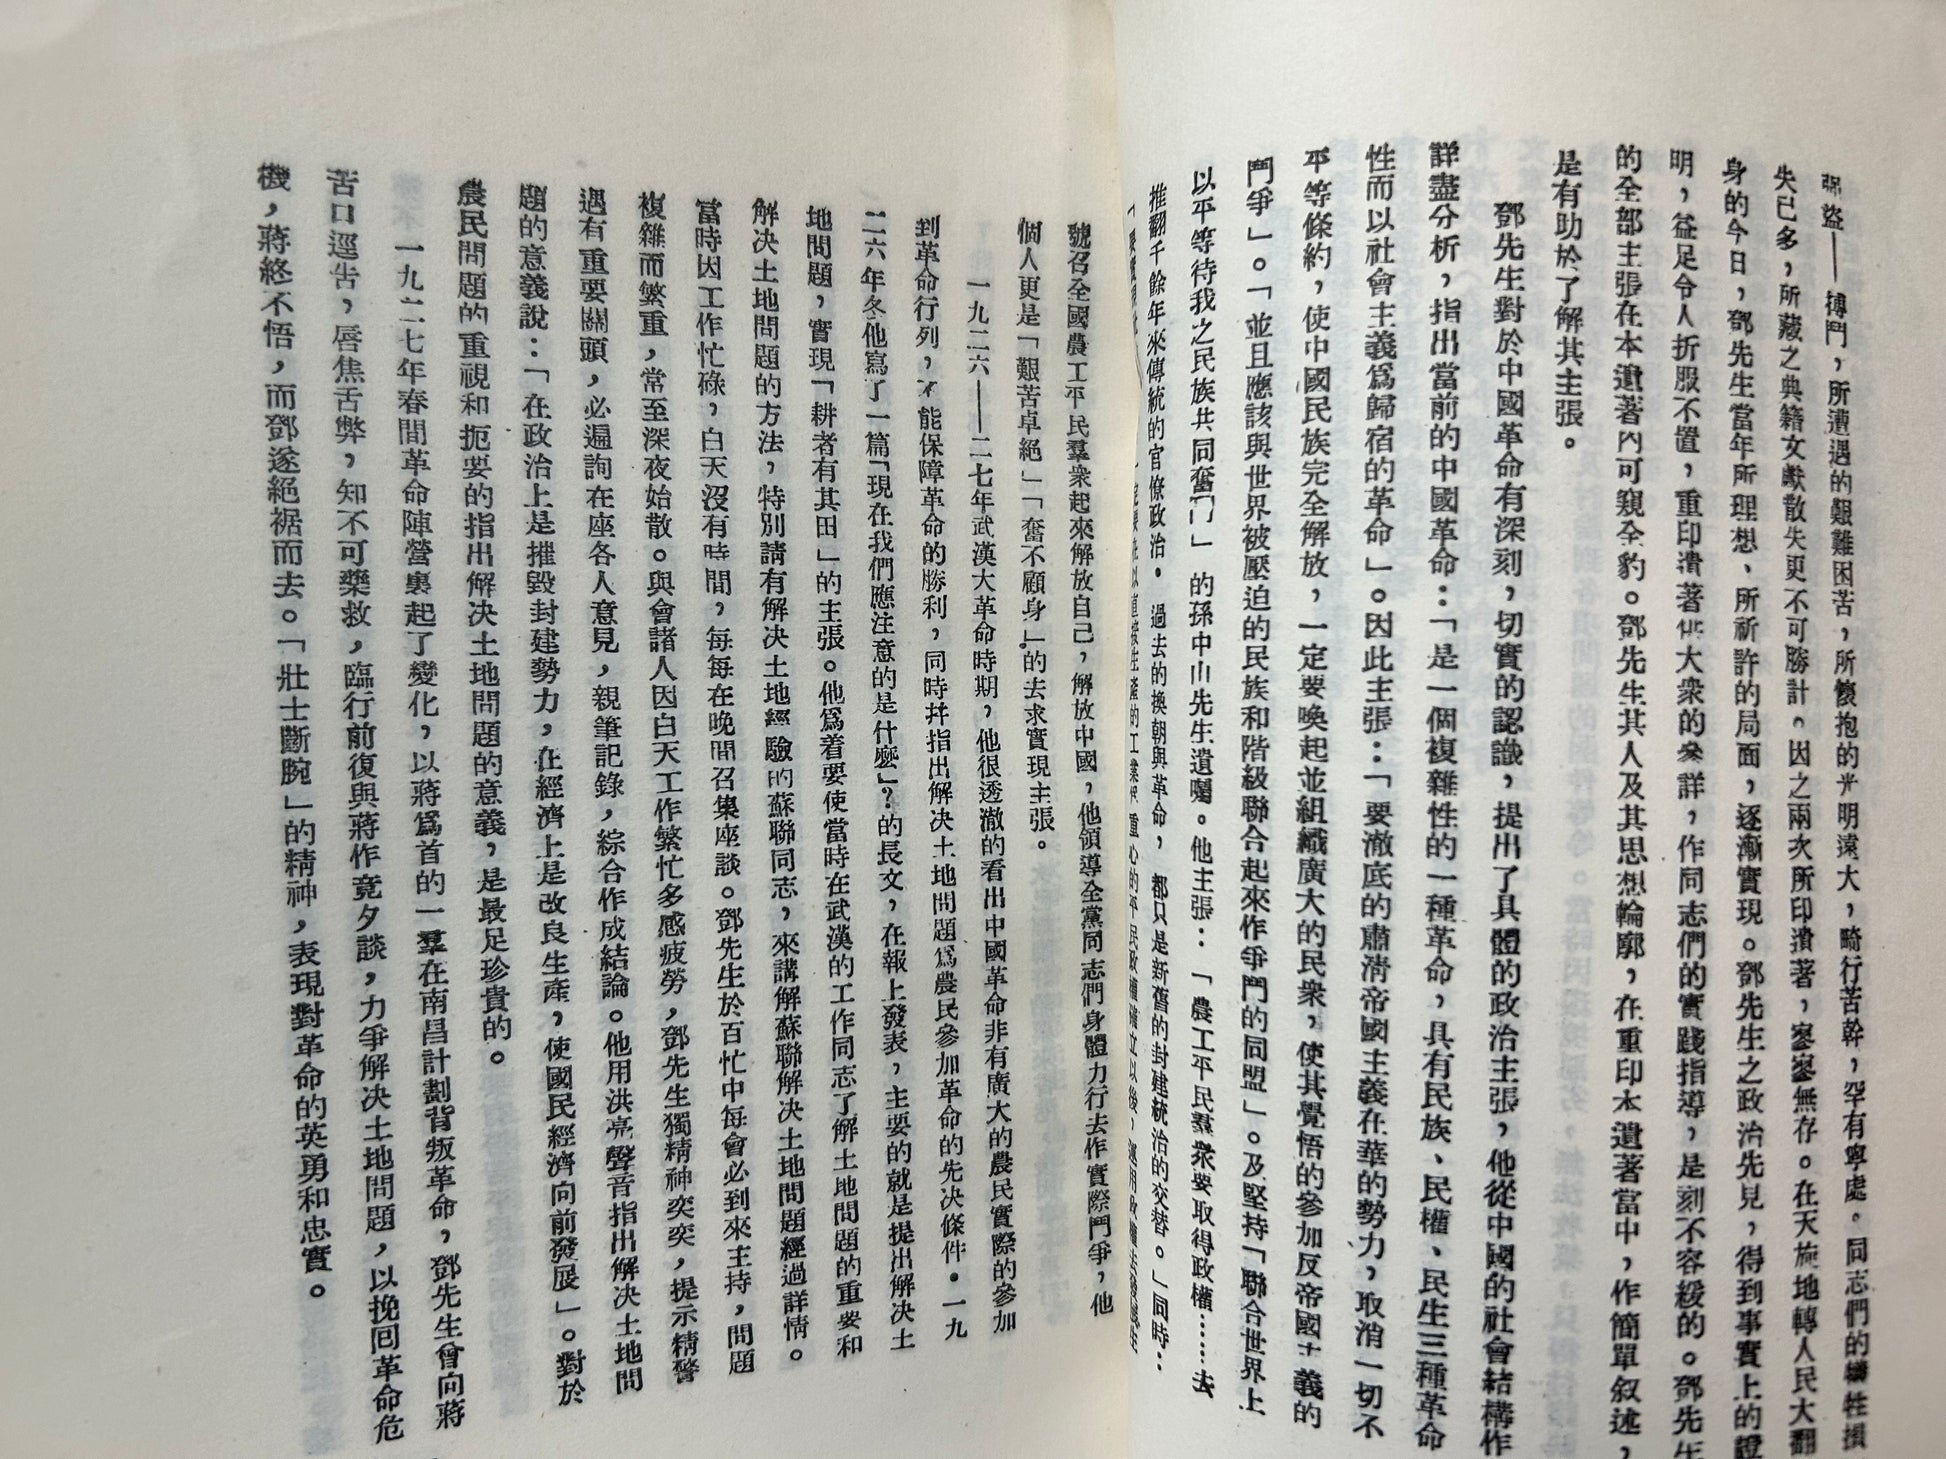 盜——搏鬥，所遭遇的艱難困苦，所懷抱的光明遠大，畸行苦幹，罕有寧處。同志們的犧牲損
失已多，所藏之典籍文獻散失更不可勝計。因之兩次所印潰著，寥寥無存。在天旋地轉人民大翻
身的今日，鄧先生當年所理想、所祈許的局面，逐漸實現。鄧先生之政治先見，得到事實上的證
明，益足令人折服不置，重印潰著供大衆的參詳，作同志們的實踐指導，是刻不容緩的。鄧先生
的全部主張在本遺著內可窺全豹。鄧先生其人及其思想輪廓，在重印本遺著當中，作簡單叙述，
是有助於了解其主張。
鄧先生對於中國革命有深刻，切實的認識，提出了具體的政治主張，他從中國的社會結構作
詳盡分析，指出當前的中國革命：「是一個複雜性的一種革命，具有民族、民權、民生三種革命
性而以社會主義爲歸宿的革命」。因此主張：「要澈底的肅淸帝國主義在華的勢力，取消一切不
平等條約，使中國民族完全解放，一定要喚起並組織廣大的民衆，使其覺悟的參加反帝國主義的
鬥爭」。「並且應該與世界被壓迫的民族和階級聯合起來作爭鬥的同盟」。及堅持「聯合世界上
以平等待我之民族共同奮鬥」的孫中山先生遺囑。他主張：「農工平民羣衆要取得政權……去
推翻千餘年來傳統的官僚政治。過去的換朝與革命，都只是新舊的封建統治的交替。」同時：
以直接生產的工業 重心的平民政權確立以後，運用政權去發
號召全國農工平民羣衆起來解放自己，解放中國，他領導全黨同志們身體力行去作實際鬥爭，他
個人更是「艱苦卓絕」「奮不顧身」的去求實現主張。
一九二六——二七年武漢大革命時期，他很透澈的看出中國革命非有廣大的農民實際的參加
到革命行列，不能保障革命的勝利，同時幷指出解决土地問題爲農民參加革命的先决條件。一九
二六年冬他寫了一篇「現在我們應注意的是什麼」？的長文，在報上發表，主要的就是提出解决土
地問題，實現「耕者有其田」的主張。他爲着要使當時在武漢的工作同志了解土地問題的重要和
解决土地問題的方法，特別請有解决土地經驗的蘇聯同志，來講解蘇聯解决土地問題經過詳情。
當時因工作忙碌，白天沒有時間，每每在晚間召集座談。鄧先生於百忙中每會必到來主持，問題
複雜而繁重，常至深夜始散。與會諸人因白天工作繁忙多感疲勞，鄧先生獨精神奕奕，提示精警
遇有重要關頭，必遍詢在座各人意見，親筆記錄，綜合作成結論。他用洪亮聲音指出解决土地問
題的意義說：「在政治上是摧毀封建勢力，在經濟上是改良生產，使國民經濟向前發展」。對於
農民問題的重視和扼要的指出解决土地問題的意義，是最足珍貴的。
一九二七年春間革命陣營裏起了變化，以蔣爲首的一羣在南昌計劃背叛革命，鄧先生曾向蔣
苦口逕告，唇焦舌弊，知不可藥救，臨行前復與蔣作竟夕談，力爭解决土地問題，以挽回革命危
機，蔣終不悟，而鄧遂絕裾而去。「壯士斷腕」的精神，表現對革命的英勇和忠實。